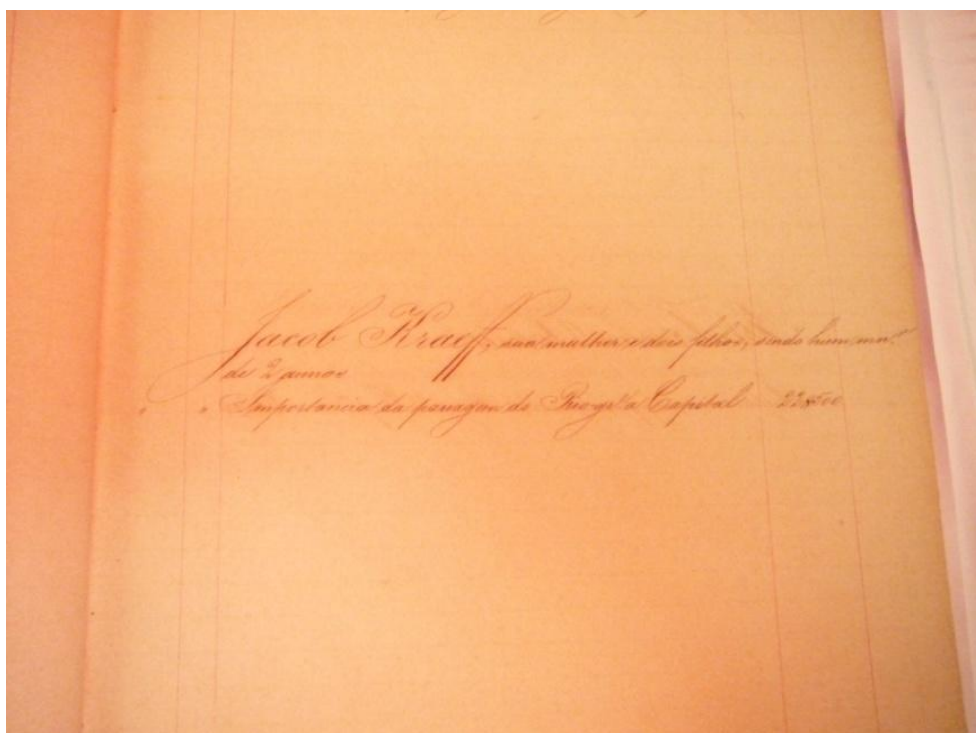 Jacob Kraeff, sua mulher e dois filhos, sendo hum mor.
de 2 annos
" " Importancia da passagem do Rio gr.e á Capital 22$500